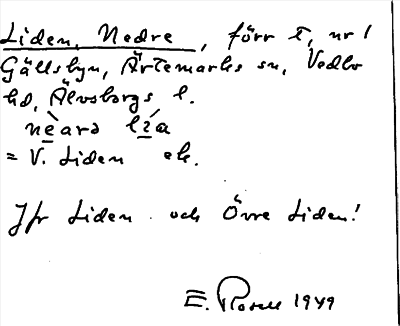 Liden, Nedre, förr t, nr 1
Gällsbyn, Ärtemarks sn, Vedbo
hd, Älvsborgs l.
= V. Liden ek.
Jfr Liden och Övre Liden!
E. Rosell 1949